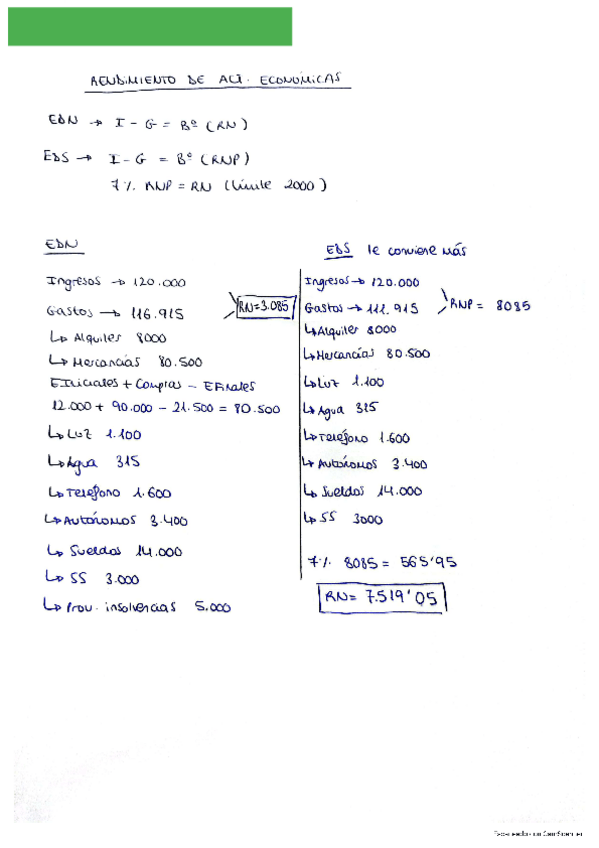 RENDIMIENTO DE ACT. ECONÓMICAS
EDN → I - G = Bº (RN)
EDS → I - G = Bº (RNP)
7% RNP = RN (límite 2000)
EDN
Ingresos → 120.000
Gastos → 116.915
RN=3.085
↳ Alquiler 8000
↳ Mercancías 80.500
EIniciales + Compras - EFinales
12.000 + 90.000 - 21.500 = 80.500
↳ Luz 1.100
↳ Agua 315
↳ Teléfono 1.600
↳ Autónomos 3.400
↳ Sueldos 14.000
↳ SS 3.000
↳ Prov. insolvencias 5.000
EDS le conviene más
Ingresos → 120.000
Gastos → 111.915
RNP = 8085
↳ Alquiler 8000
↳ Mercancías 80.500
↳ Luz 1.100
↳ Agua 315
↳ Teléfono 1.600
↳ Autónomos 3.400
↳ Sueldos 14.000
↳ SS 3000
7% 8085 = 565'95
RN= 7.519'05
Escaneado con CamScanner